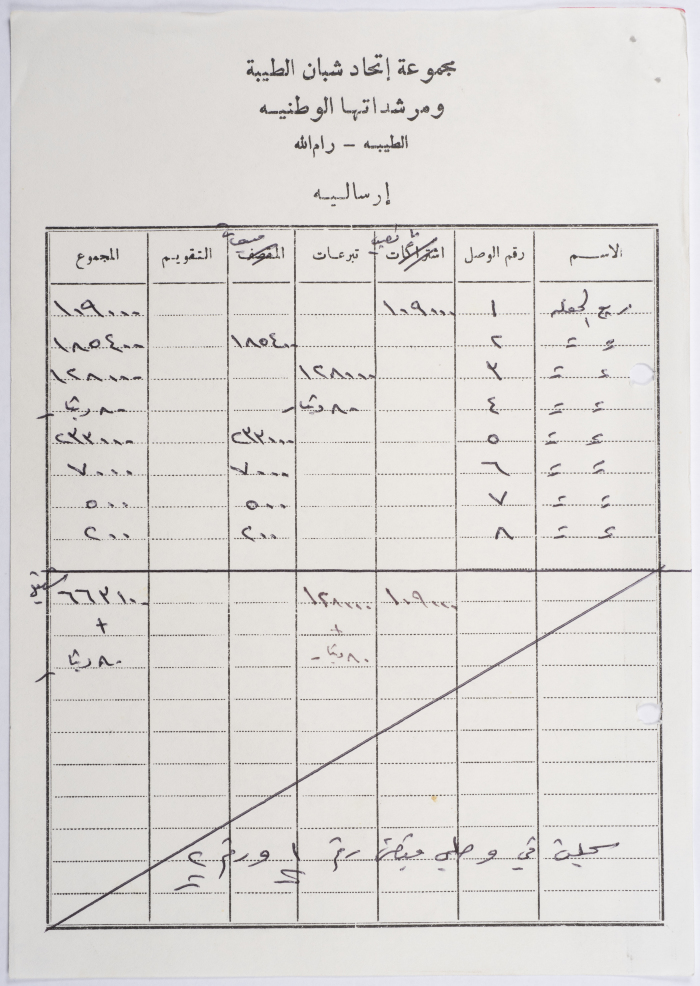 مجموعة إتحاد شبان الطيبة
ومرشداتها الوطنيه
الطيبه – رام الله
إرساليه
الاسم رقم الوصل اشتراكات تبرعات المقصف التقويم المجموع
ريع الحفلة ١ ١٠٩٠٠٠ ١٠٩٠٠٠
= = ٢ ١٨٥٤٠٠ ١٨٥٤٠٠
= = ٣ ١٢٨٠٠٠ ١٢٨٠٠٠
= = ٤ ٨٠ دينار ٨٠ دينار
= = ٥ ٢٣٣٠٠٠ ٢٣٣٠٠٠
= = ٦ ٧٠٠٠ ٧٠٠٠
= = ٧ ٥٠٠ ٥٠٠
= = ٨ ٢٠٠ ٢٠٠
١٠٩٠٠٠ ١٢٨٠٠٠ ٦٦٣١٠٠
+ +
٨٠ دينار ٨٠ دينار
سجلت في وصلي مقبوضات رقم ١ ورقم ٢